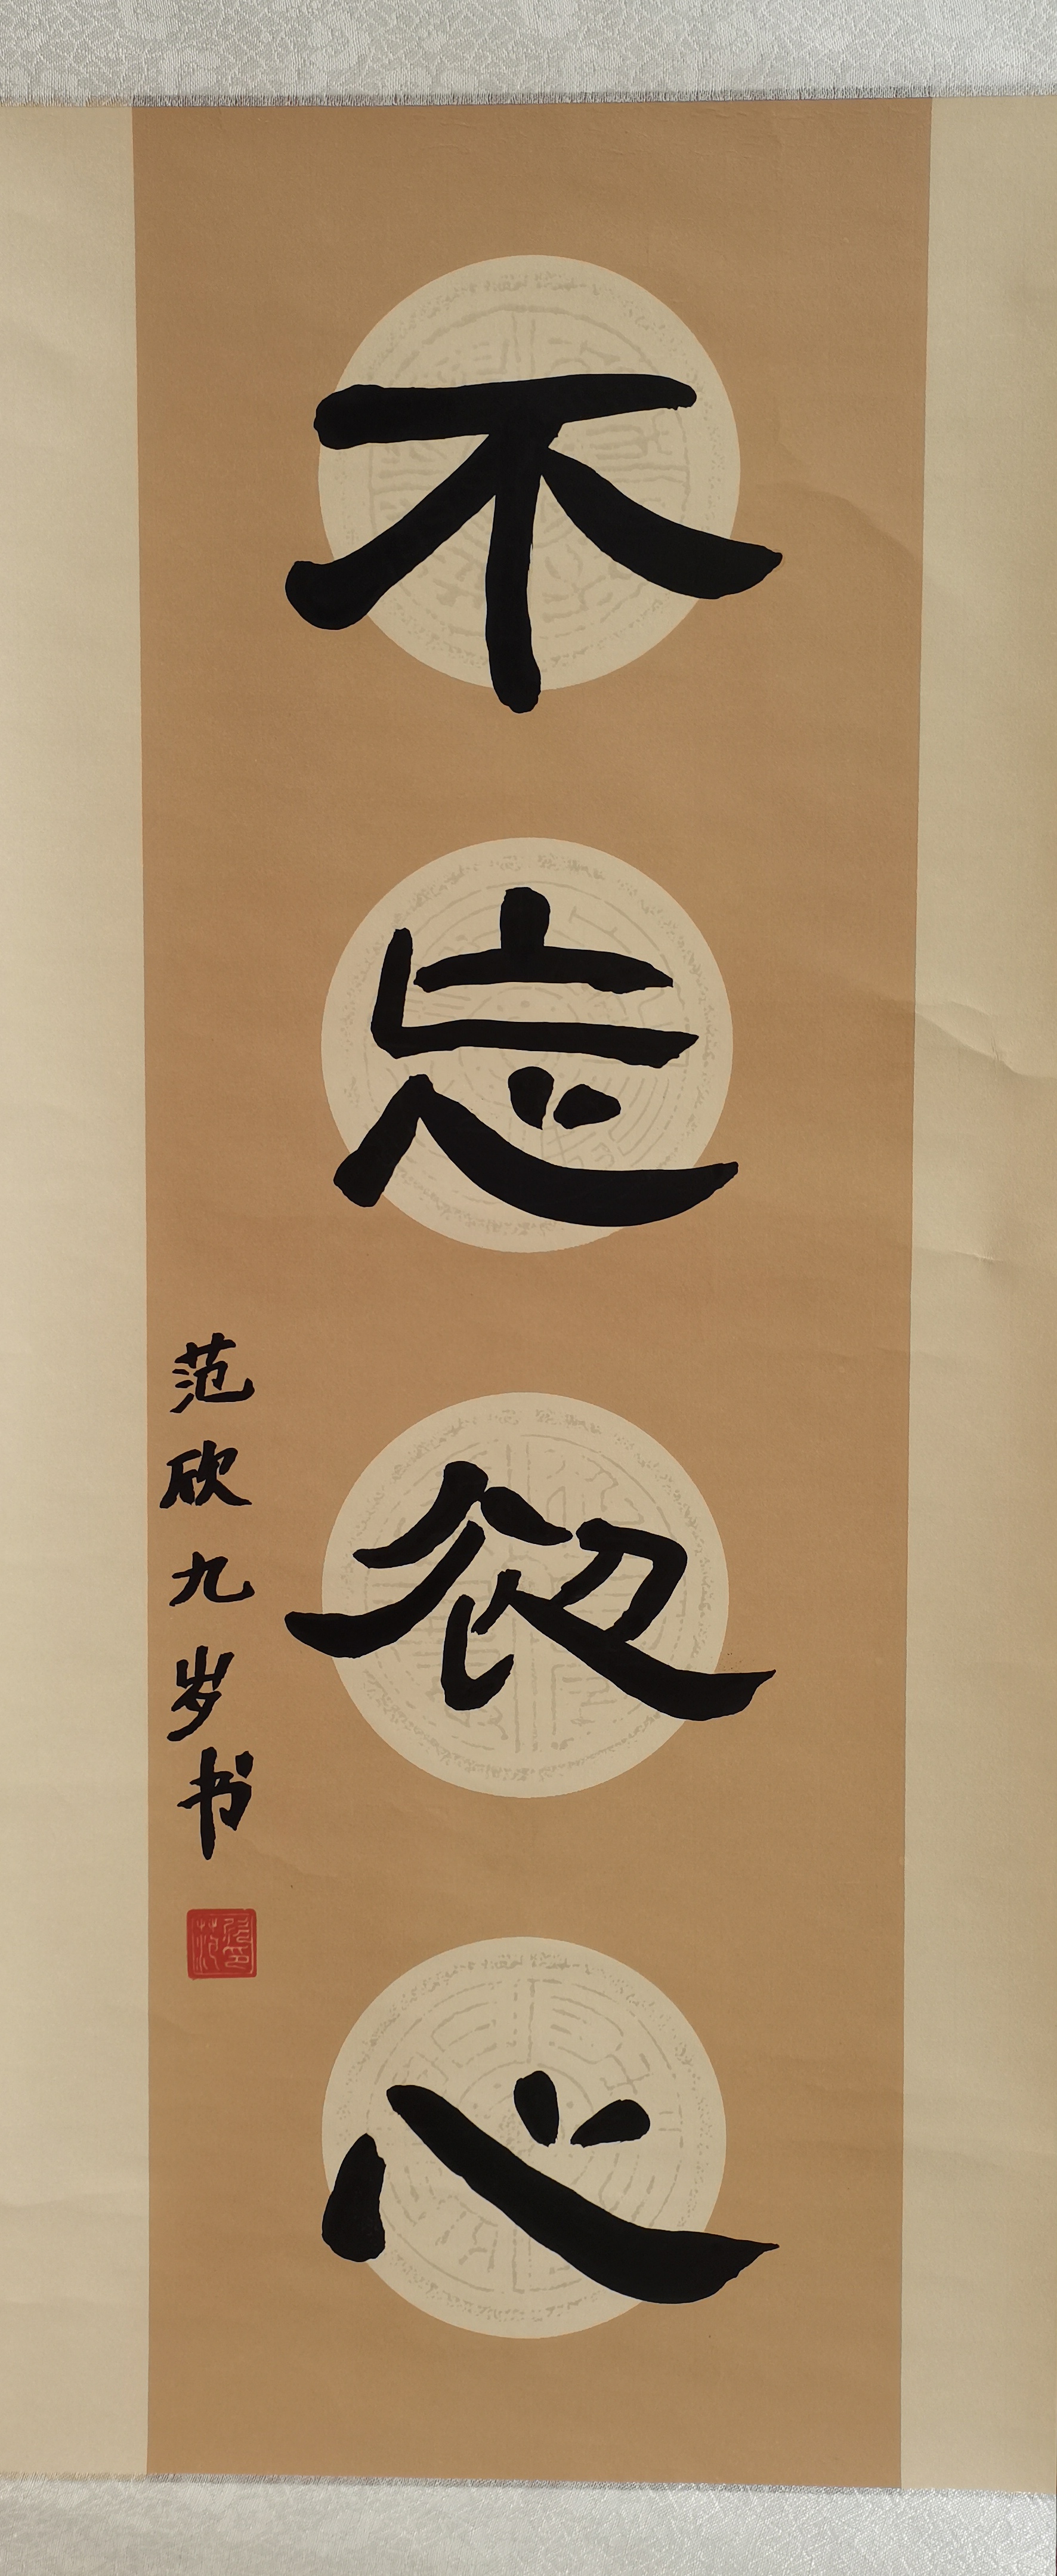 不忘初心
范欣九岁书